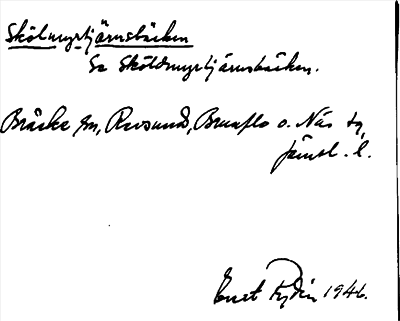 Skölmyrtjärnsbäcken
Se Sköldmyrtjärnsbäcken.
Bräcke sn, Revsund, Brunflo o. Näs tg,
Jämtl. l.
Curt Rydin 1946.